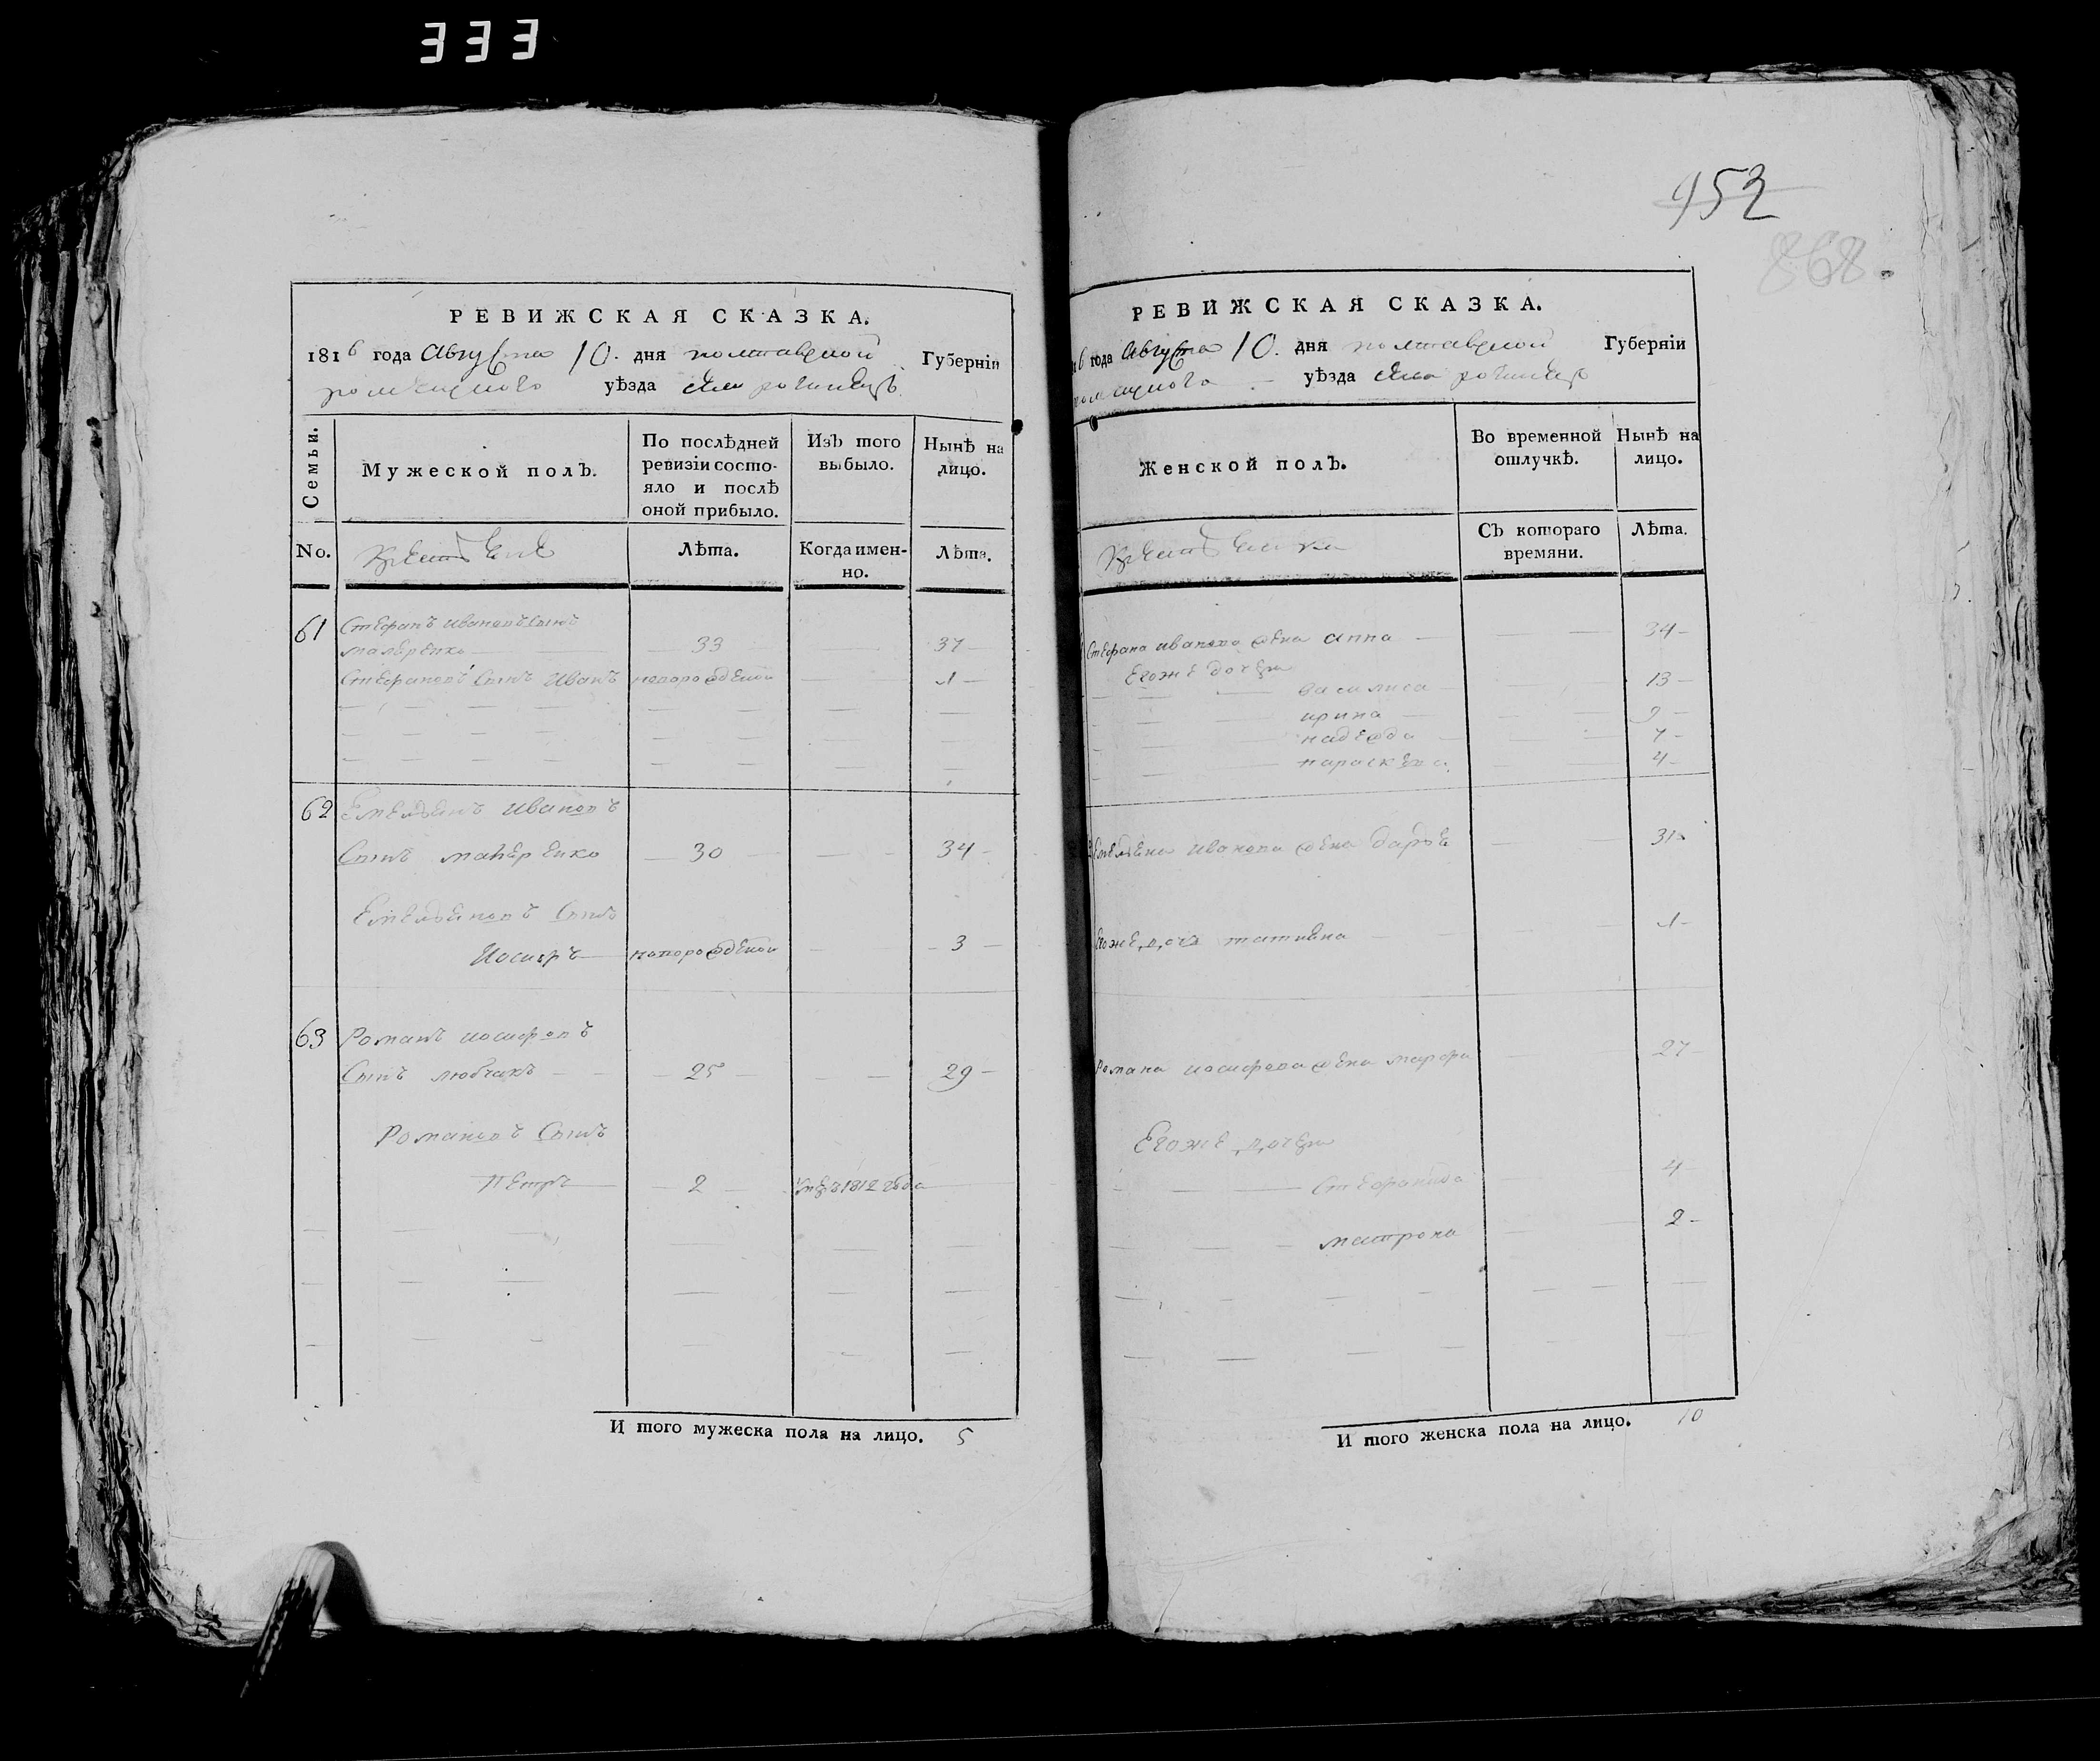 333
952
868.
РЕВИЖСКАЯ СКАЗКА.
1816 года Августа 10. дня полтавской Губерніи
роменского уѣзда села
Семьи.
Мужеской полъ.
По послѣдней ревизіи состояло и послѣ оной прибыло.
Изъ того выбыло.
Нынѣ на лицо.
No.
Лѣта.
Когда именно.
Лѣта.
61 Стефанъ Ивановъ Сынъ
33 37
Стефановъ Сынъ Иванъ новорожденой 1
62 Емельянъ Ивановъ
Сынъ 30 34
Емельяновъ Сынъ
Иосифъ новорожденой 3
63 Романъ иосифовъ
Сынъ любчакъ 25 29
Романовъ Сынъ
Петръ 2 1812 года
И того мужеска пола на лицо. 5
РЕВИЖСКАЯ СКАЗКА.
6 года Августа 10. дня полтавской Губерніи
роменского уѣзда села
Женской полъ.
Во временной отлучкѣ.
Нынѣ на лицо.
Съ котораго времяни.
Лѣта.
Стефана иванова жена анна 34
Егоже дочери
василиса 13
ирина 9
надежда 7
параскева 4
Емельяна иванова жена дарья 31
Егоже дочь татиана 1
Романа иосифова жена марфа 27
Егоже дочери
Стефанида 4
матрона 2
И того женска пола на лицо. 10